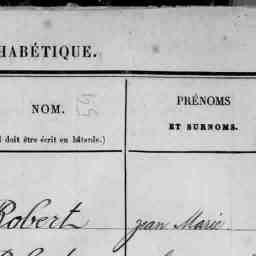 HABÉTIQUE.
NOM.
59
PRÉNOMS
ET SURNOMS.
doit être écrit en bâtarde.)
Robert
jean Marie